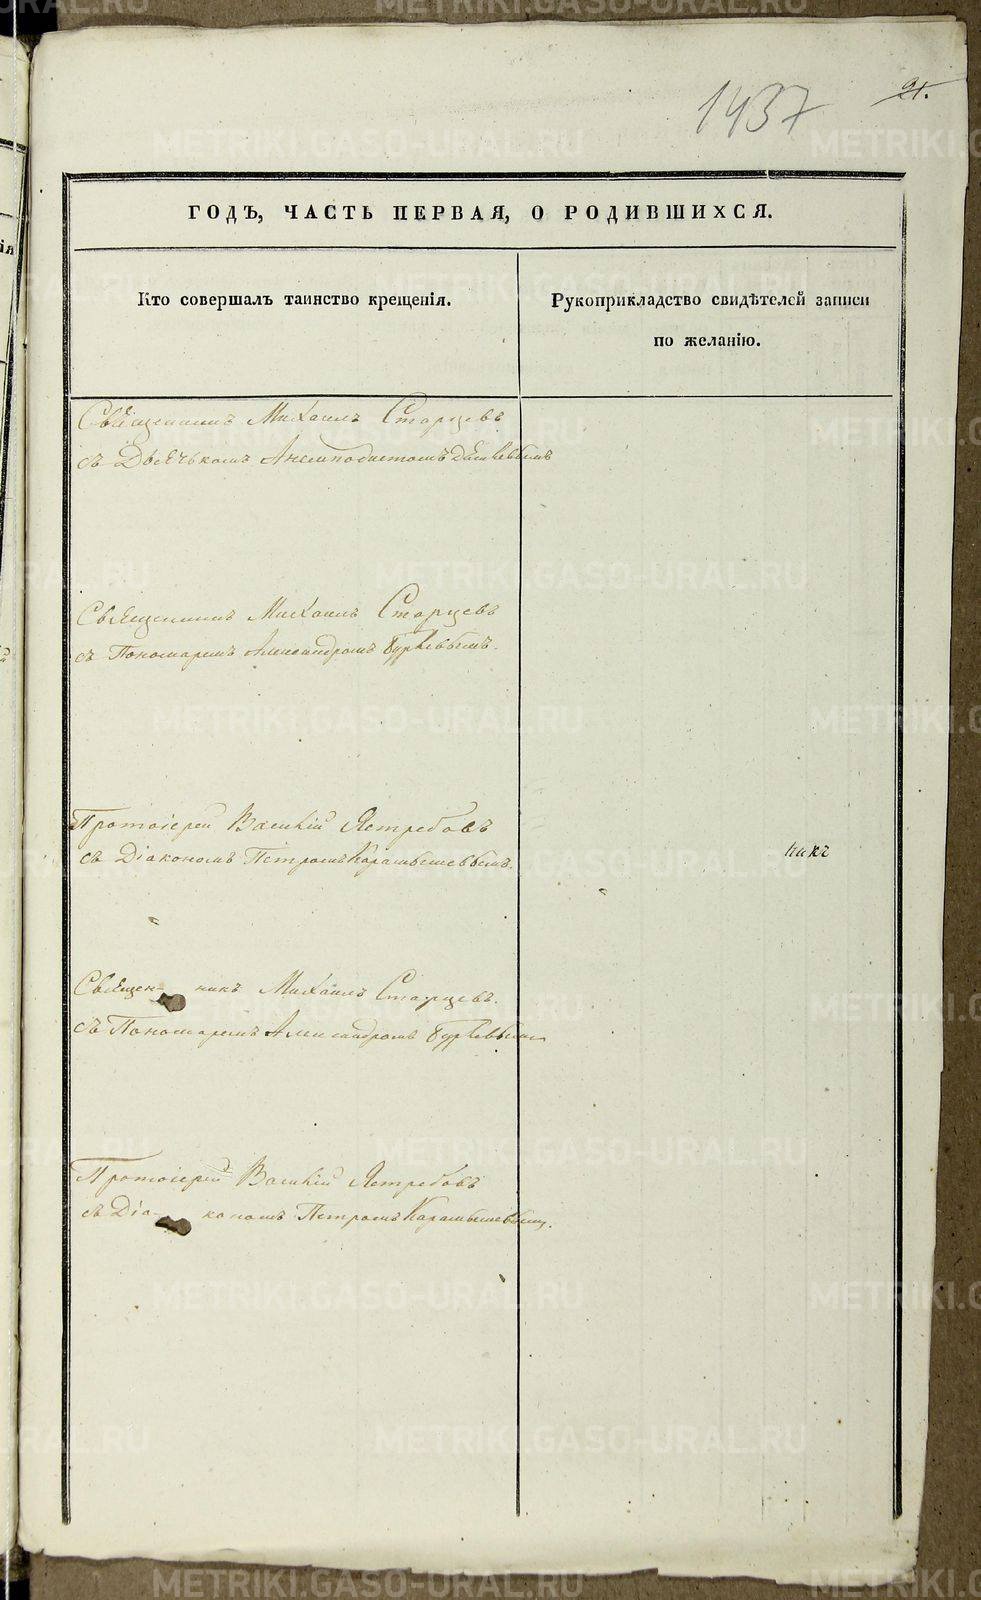 1437
21.
ГОДЪ, ЧАСТЬ ПЕРВАЯ, О РОДИВШИХСЯ.
Кто совершалъ таинство крещенія.
Рукоприкладство свидѣтелей записи
по желанію.
Священникъ Михаилъ Старцевъ
съ Дьячькомъ Анемподистомъ
Священникъ Михаилъ Старцевъ
съ Пономаремъ Александромъ
Протоіерей Василій Ястребовъ
съ Діакономъ Петромъ Карамышевымъ.
никъ
Священ- никъ Михаилъ Старцевъ.
съ Пономаремъ Александромъ
Протоіерей Василій Ястребовъ
съ Діа- кономъ Петромъ Карамышевымъ.
METRIKI.GASO-URAL.RU